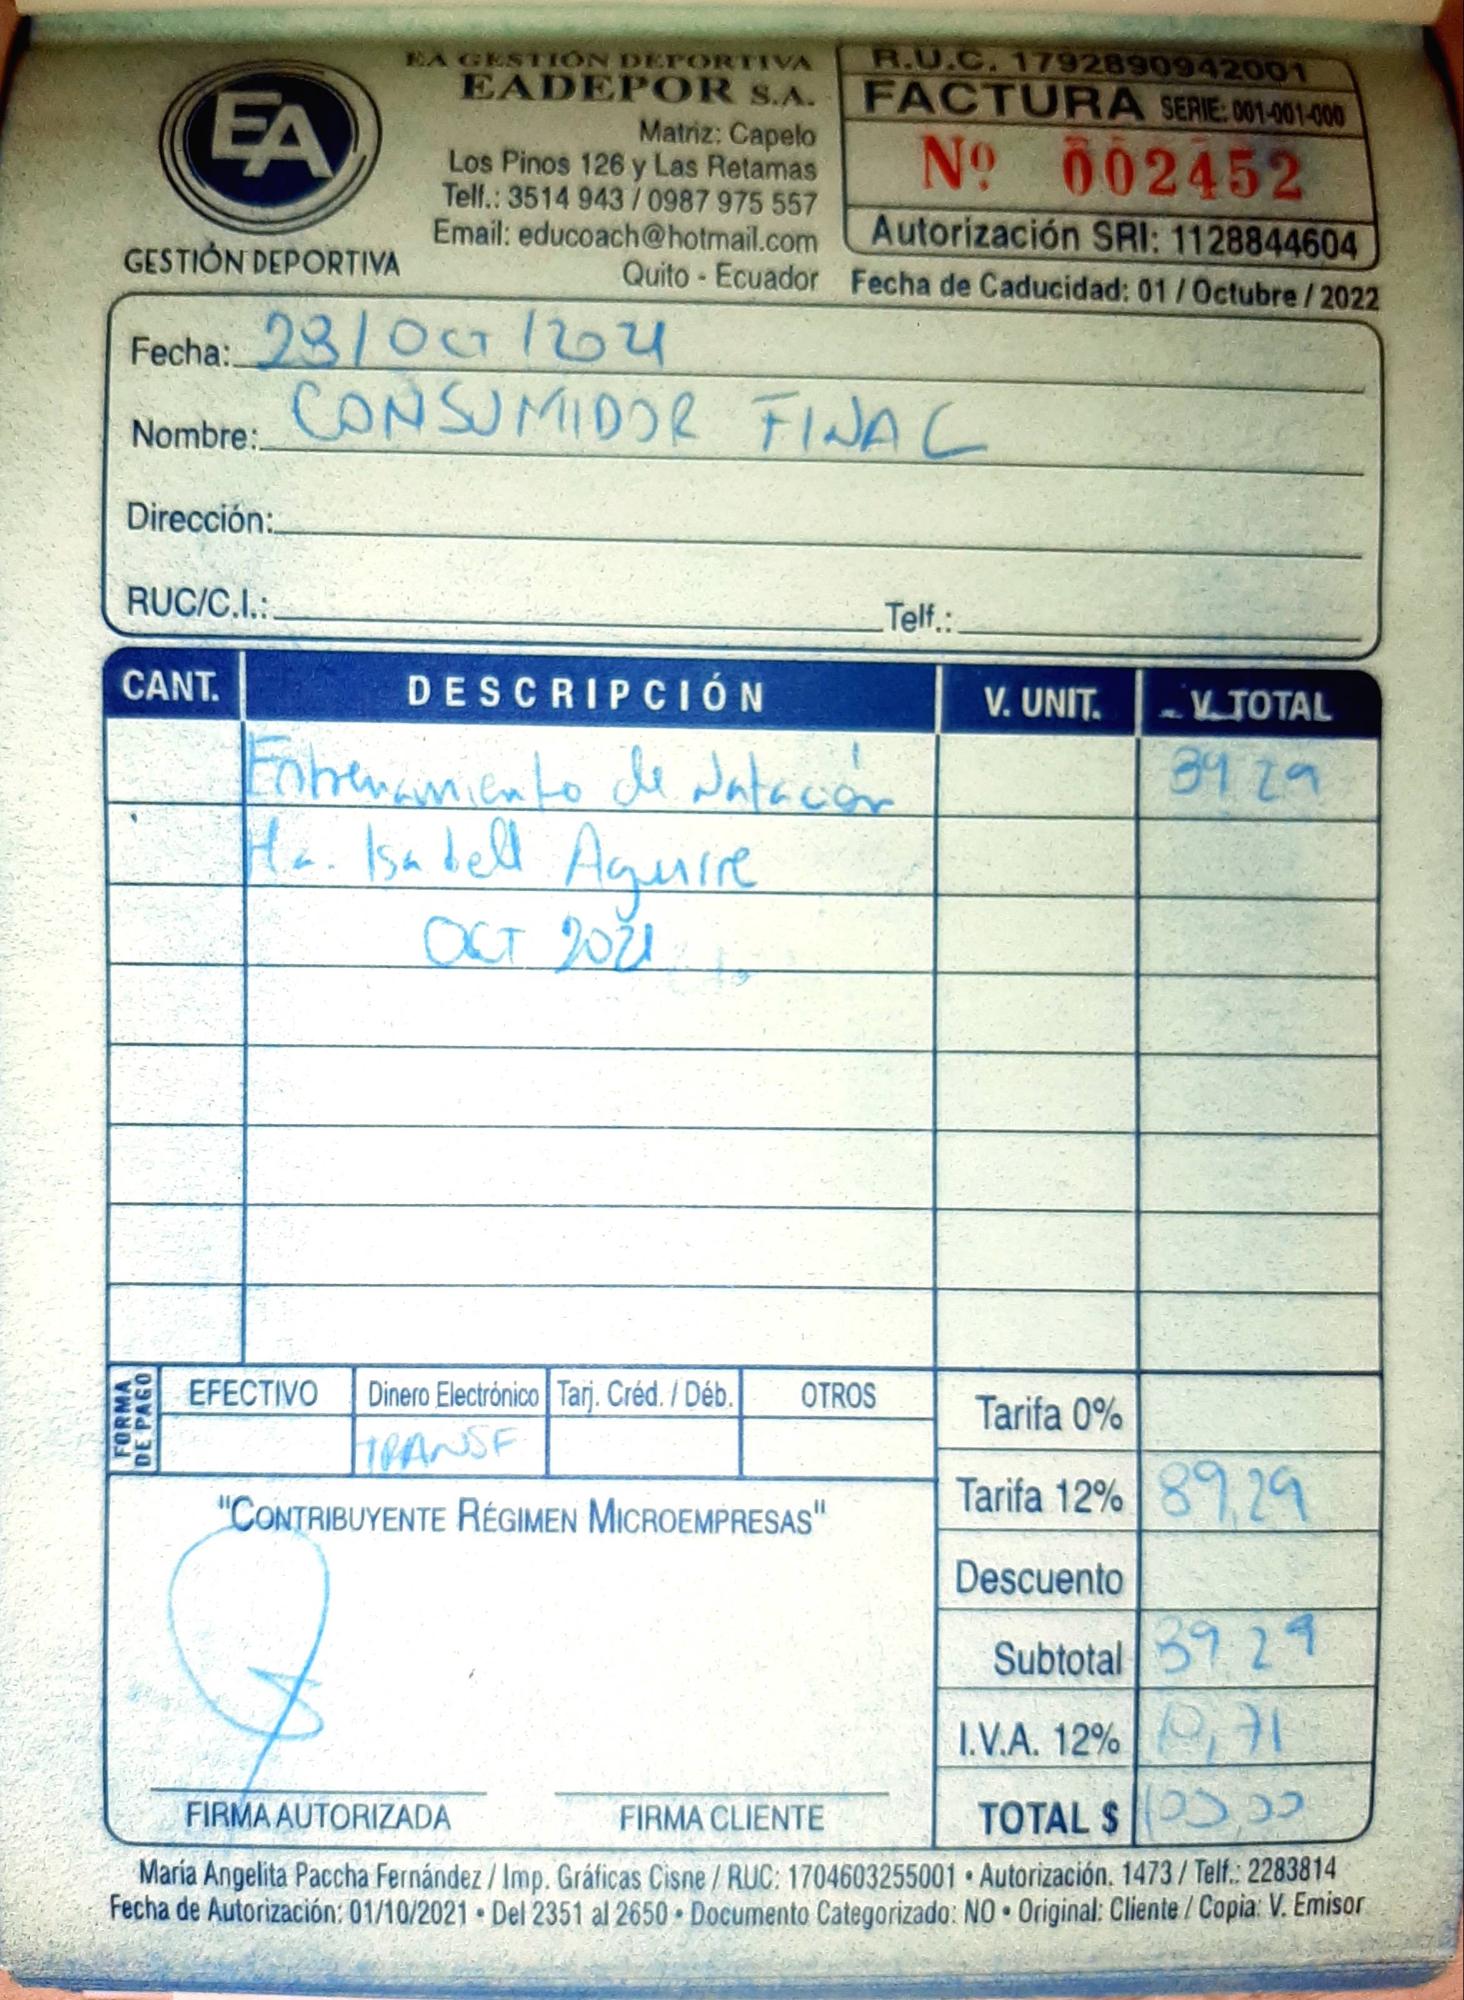 EA
GESTIÓN DEPORTIVA
EA GESTIÓN DEPORTIVA
EADEPOR S.A.
Matriz: Capelo
Los Pinos 126 y Las Retamas
Telf.: 3514 943 / 0987 975 557
Email: educoach@hotmail.com
Quito - Ecuador
R.U.C. 1792890942001
FACTURA SERIE: 001-001-000
Nº 002452
Autorización SRI: 1128844604
Fecha de Caducidad: 01 / Octubre / 2022
Fecha: 29/OCT/2021
Nombre: CONSUMIDOR FINAL
Dirección:
RUC/C.I.: Telf.:
CANT. DESCRIPCIÓN V. UNIT. V. TOTAL
Entrenamiento de Natación 89 29
Ma. Isabell Aguirre
OCT 2021
FORMA DE PAGO EFECTIVO Dinero Electrónico Tarj. Créd. / Déb. OTROS
TRANSF
Tarifa 0%
Tarifa 12% 89,29
Descuento
Subtotal 89 29
I.V.A. 12% 10,71
TOTAL $ 100,00
"CONTRIBUYENTE RÉGIMEN MICROEMPRESAS"
FIRMA AUTORIZADA FIRMA CLIENTE
María Angelita Paccha Fernández / Imp. Gráficas Cisne / RUC: 1704603255001 • Autorización. 1473 / Telf.: 2283814
Fecha de Autorización: 01/10/2021 • Del 2351 al 2650 • Documento Categorizado: NO • Original: Cliente / Copia: V. Emisor